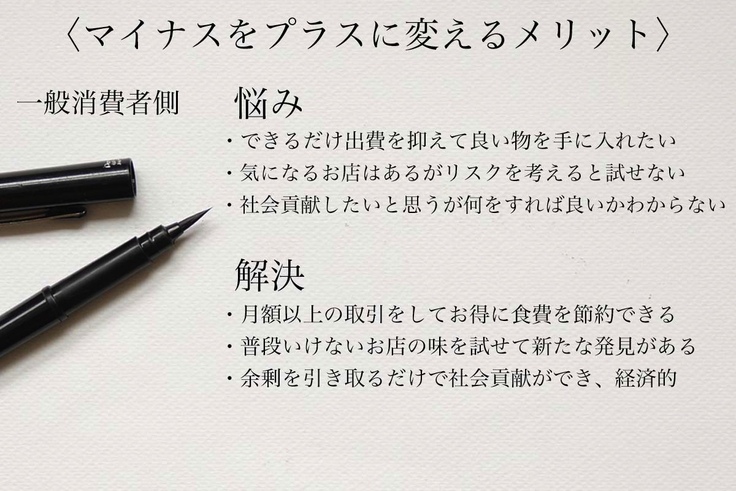 〈マイナスをプラスに変えるメリット〉
一般消費者側
悩み
・できるだけ出費を抑えて良い物を手に入れたい
・気になるお店はあるがリスクを考えると試せない
・社会貢献したいと思うが何をすれば良いかわからない
解決
・月額以上の取引をしてお得に食費を節約できる
・普段いけないお店の味を試せて新たな発見がある
・余剰を引き取るだけで社会貢献ができ、経済的